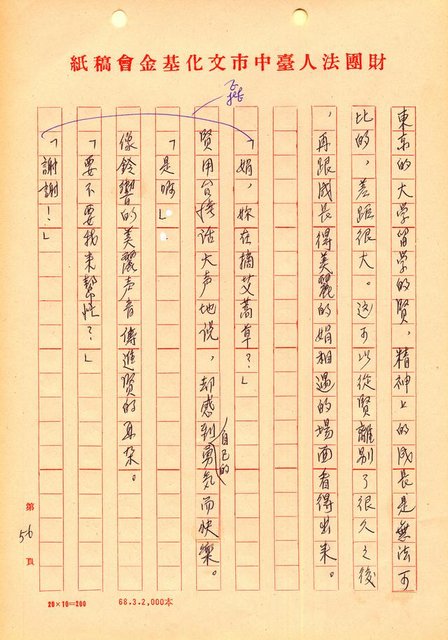 財團法人臺中市文化基金會稿紙
東京的大学留学的賢，精神上的成長是無法可
比的，差距很大。這可以從賢離別了很久之後
，再跟成長得美麗的娟相遇的場面看得出来。
「娟，妳在摘艾蒿草？」
賢用宮傳话大声地说，却感到自己的勇氣而快樂。
「是啊」
像鈴響的美麗声音傳進賢的耳朶。
「要不要我来幫忙？」
「謝謝！」
第 56 頁
20×10=200 68.3.2,000本